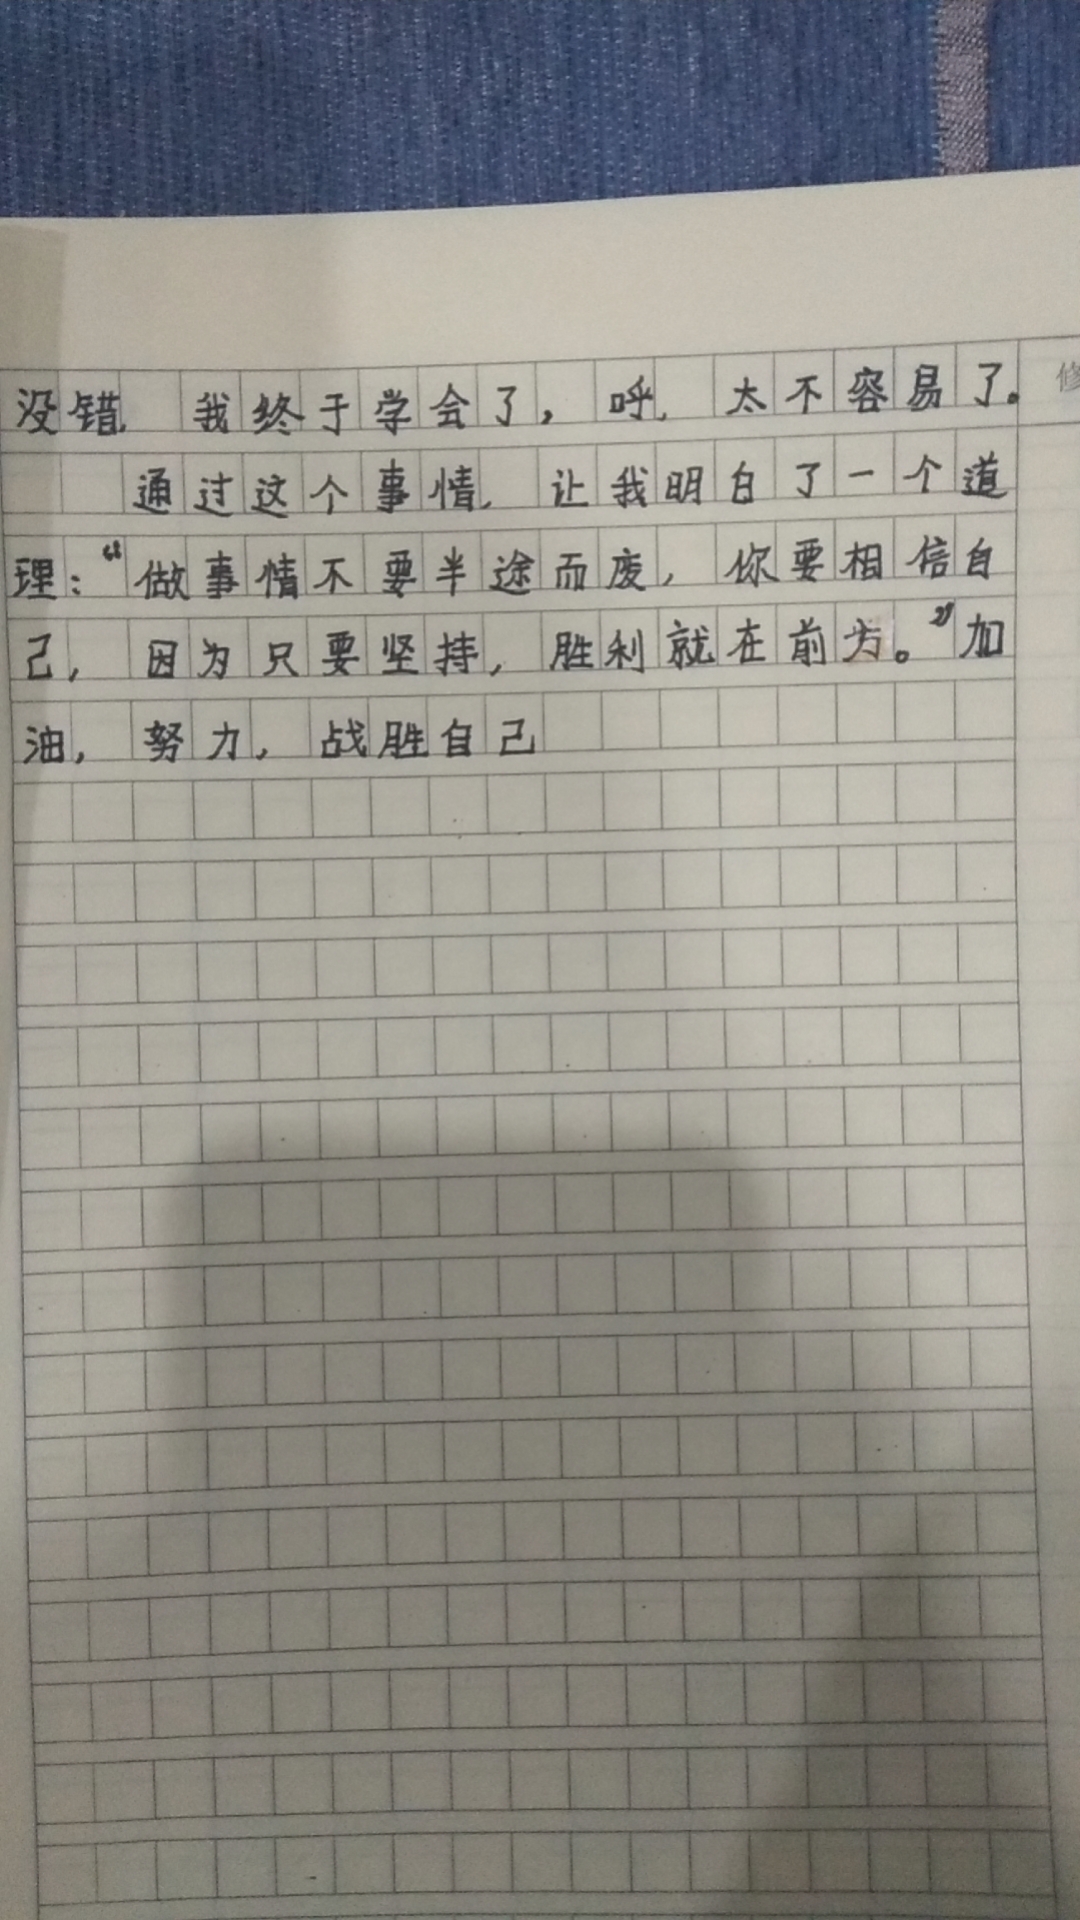 没错,我终于学会了,呼,太不容易了。
修
通过这个事情,让我明白了一个道
理:“做事情不要半途而废,你要相信自
己,因为只要坚持,胜利就在前方。”加
油,努力,战胜自己